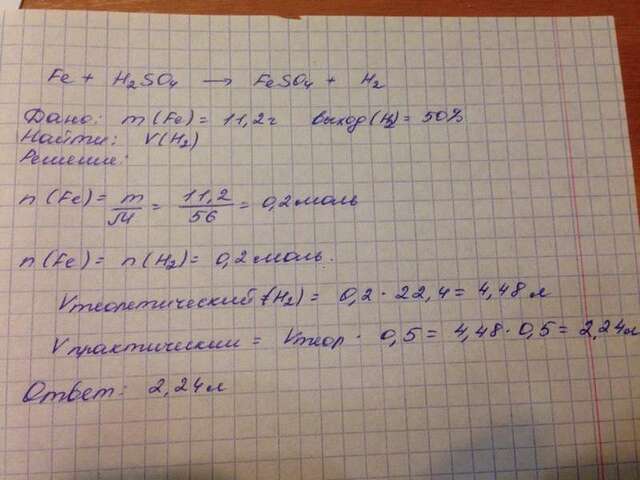 Fe + H2SO4 → FeSO4 + H2
Дано: m(Fe) = 11,2г выход(H2) = 50%
Найти: V(H2)
Решение:
n(Fe) = m/M = 11,2/56 = 0,2 моль
n(Fe) = n(H2) = 0,2 моль.
Vтеоретический(H2) = 0,2 · 22,4 = 4,48 л
Vпрактический = Vтеор · 0,5 = 4,48 · 0,5 = 2,24л
Ответ: 2,24л